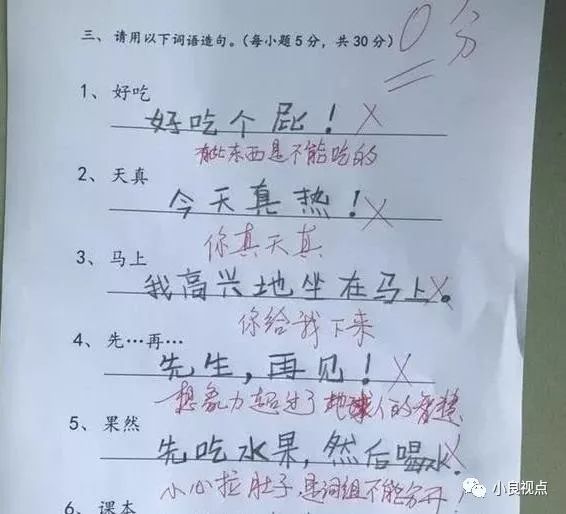 三、请用以下词语造句。(每小题5分，共30分)
0分
1、好吃
好吃个屁！
有些东西是不能吃的
2、天真
今天真热！
你真天真
3、马上
我高兴地坐在马上。
你给我下来
4、先…再…
先生，再见！
想象力超过了地球人的智慧
5、果然
先吃水果，然后喝水。
小心拉肚子，是词组不能分开！
6、课本
小良视点